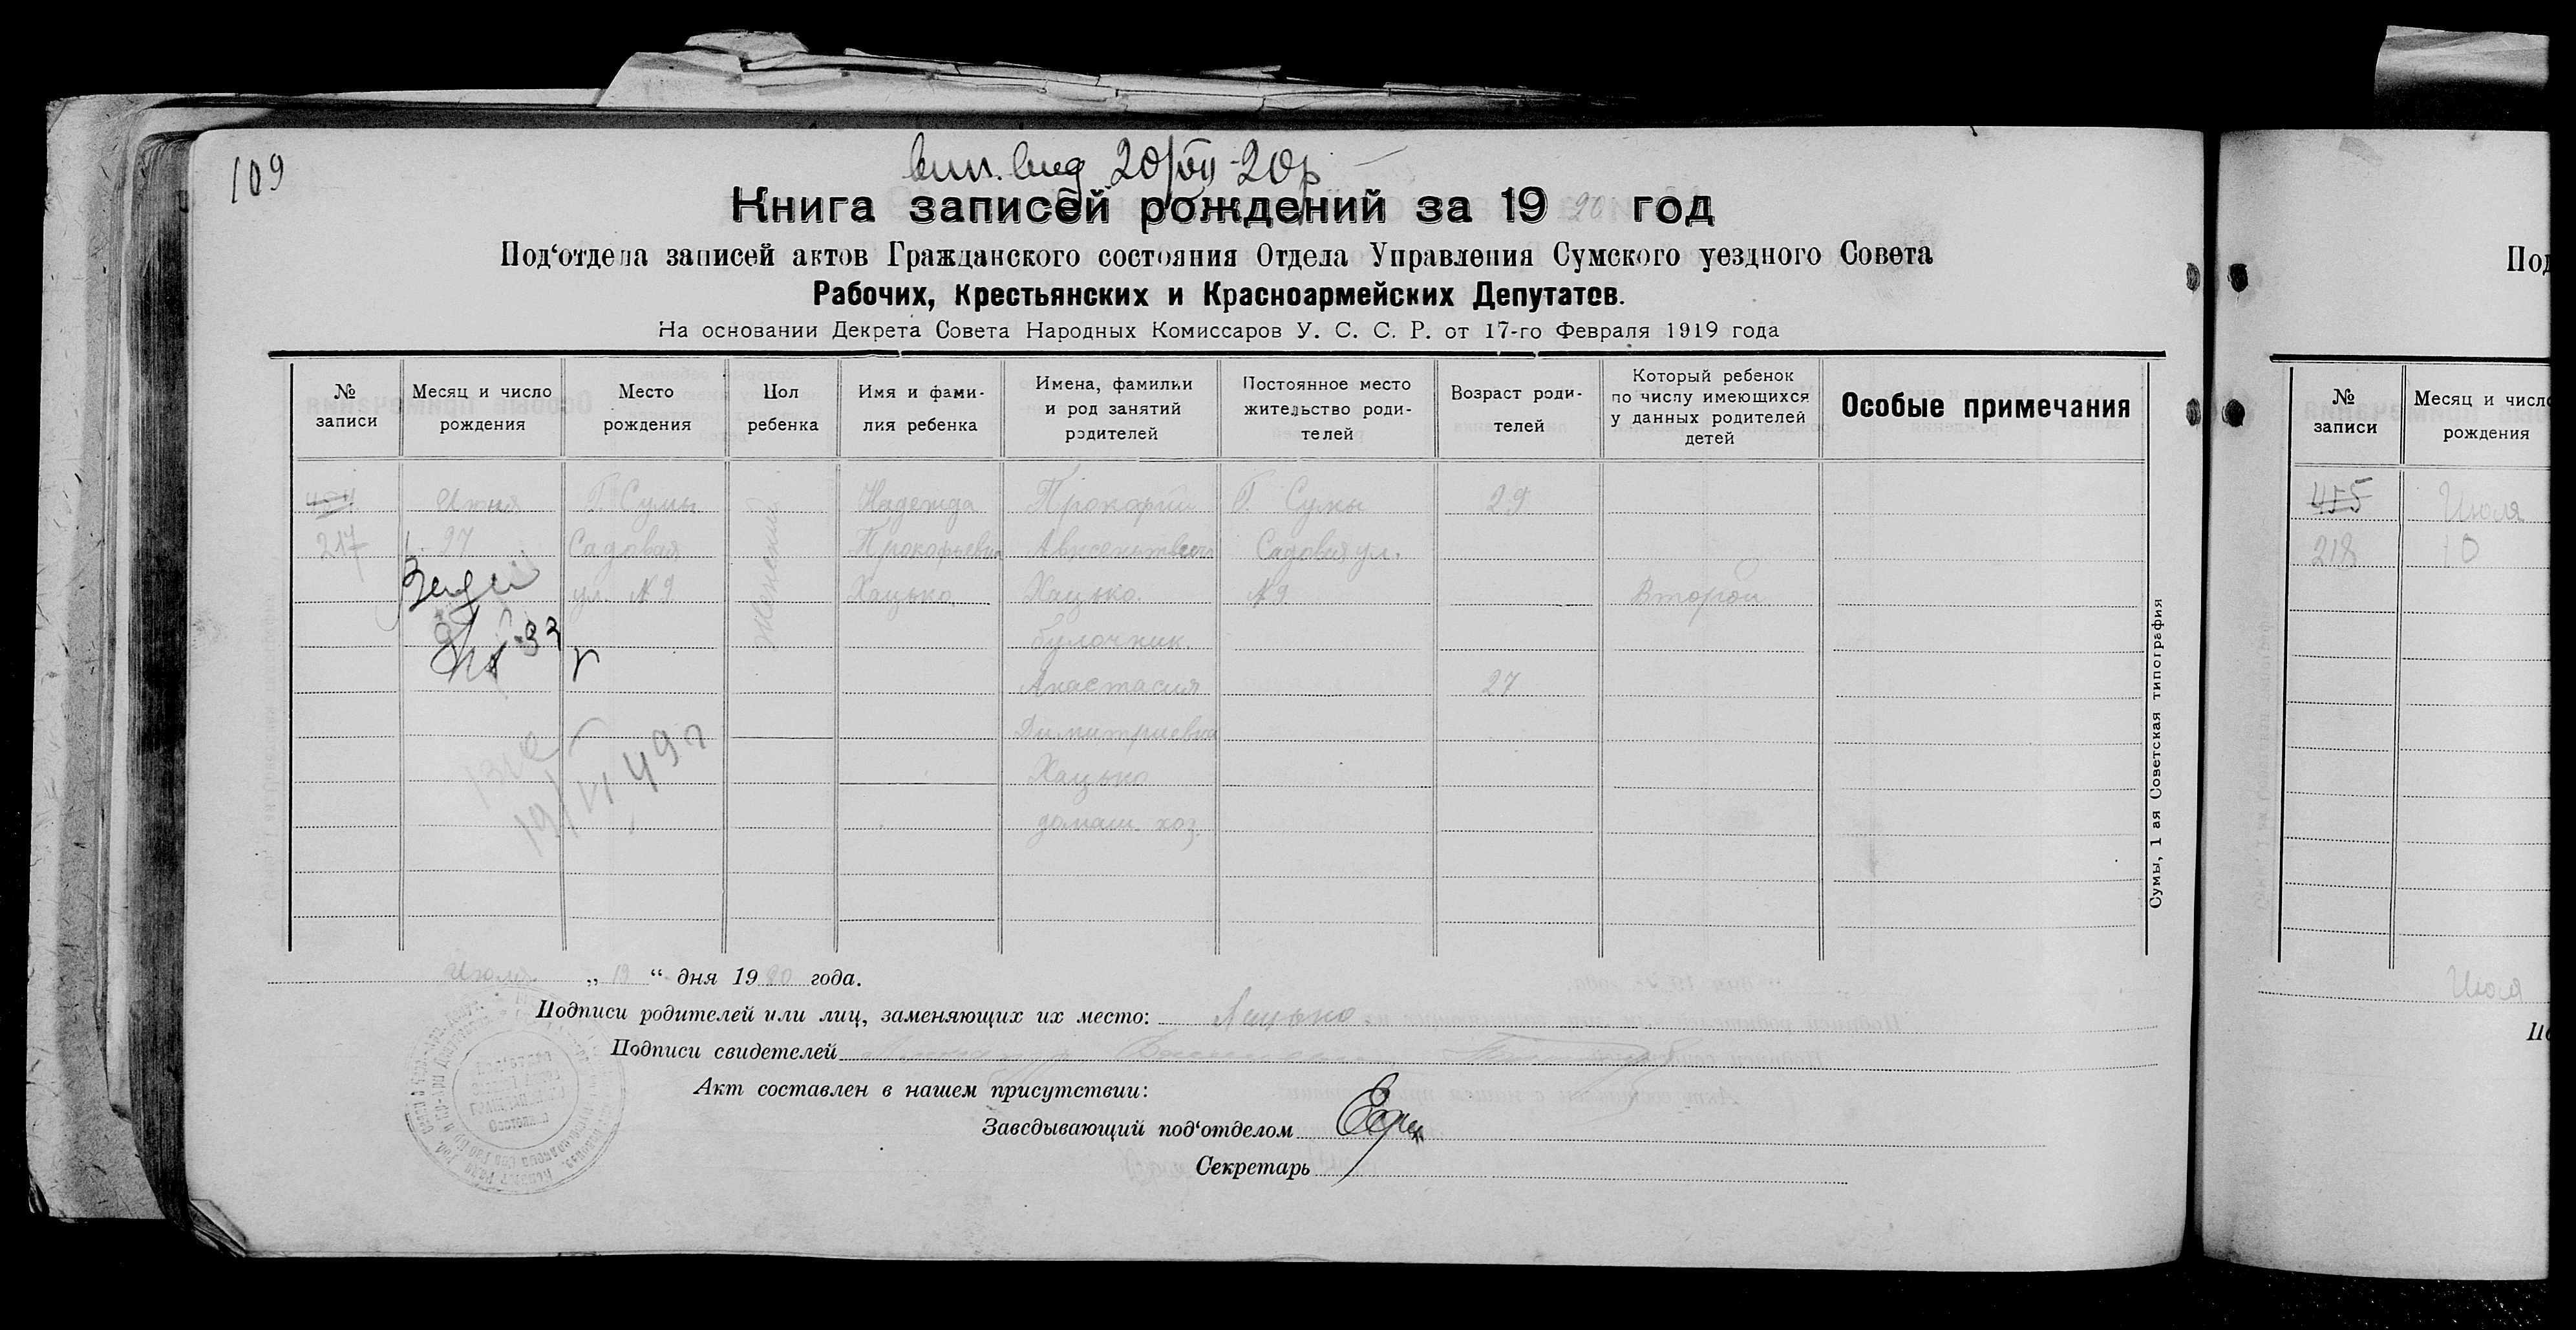 109
20/VII-20р
Книга записей рождений за 1920 год
Под‘отдела записей актов Гражданского состояния Отдела Управления Сумского уездного Совета
Рабочих, Крестьянских и Красноармейских Депутатов.
На основании Декрета Совета Народных Комиссаров У. С. С. Р. от 17-го Февраля 1919 года
№ записи
Месяц и число рождения
Место рождения
Пол ребенка
Имя и фамилия ребенка
Имена, фамилии и род занятий родителей
Постоянное место жительство родителей
Возраст родителей
Который ребенок по числу имеющихся у данных родителей детей
Особые примечания
454 Июня Г. Сумы Женский Надежда Прокофий Г. Сумы 29
217 27 Садовая Прокофьевна Авксентьевич Садовая ул.
ул. №9 Хацько Хацько №9 Второй
булочник
Анастасия 27
Димитриевна
Хацько
домаш. хоз.
19/VI 49г
Июля „ 19 “ дня 1920 года.
Подписи родителей или лиц, заменяющих их место: Хацько
Подписи свидетелей
Акт составлен в нашем присутствии:
Заведывающий под‘отделом
Секретарь
Сумы, 1 ая Советская типография
Под
№ записи
Месяц и число рождения
455 Июля
218 10
Июля